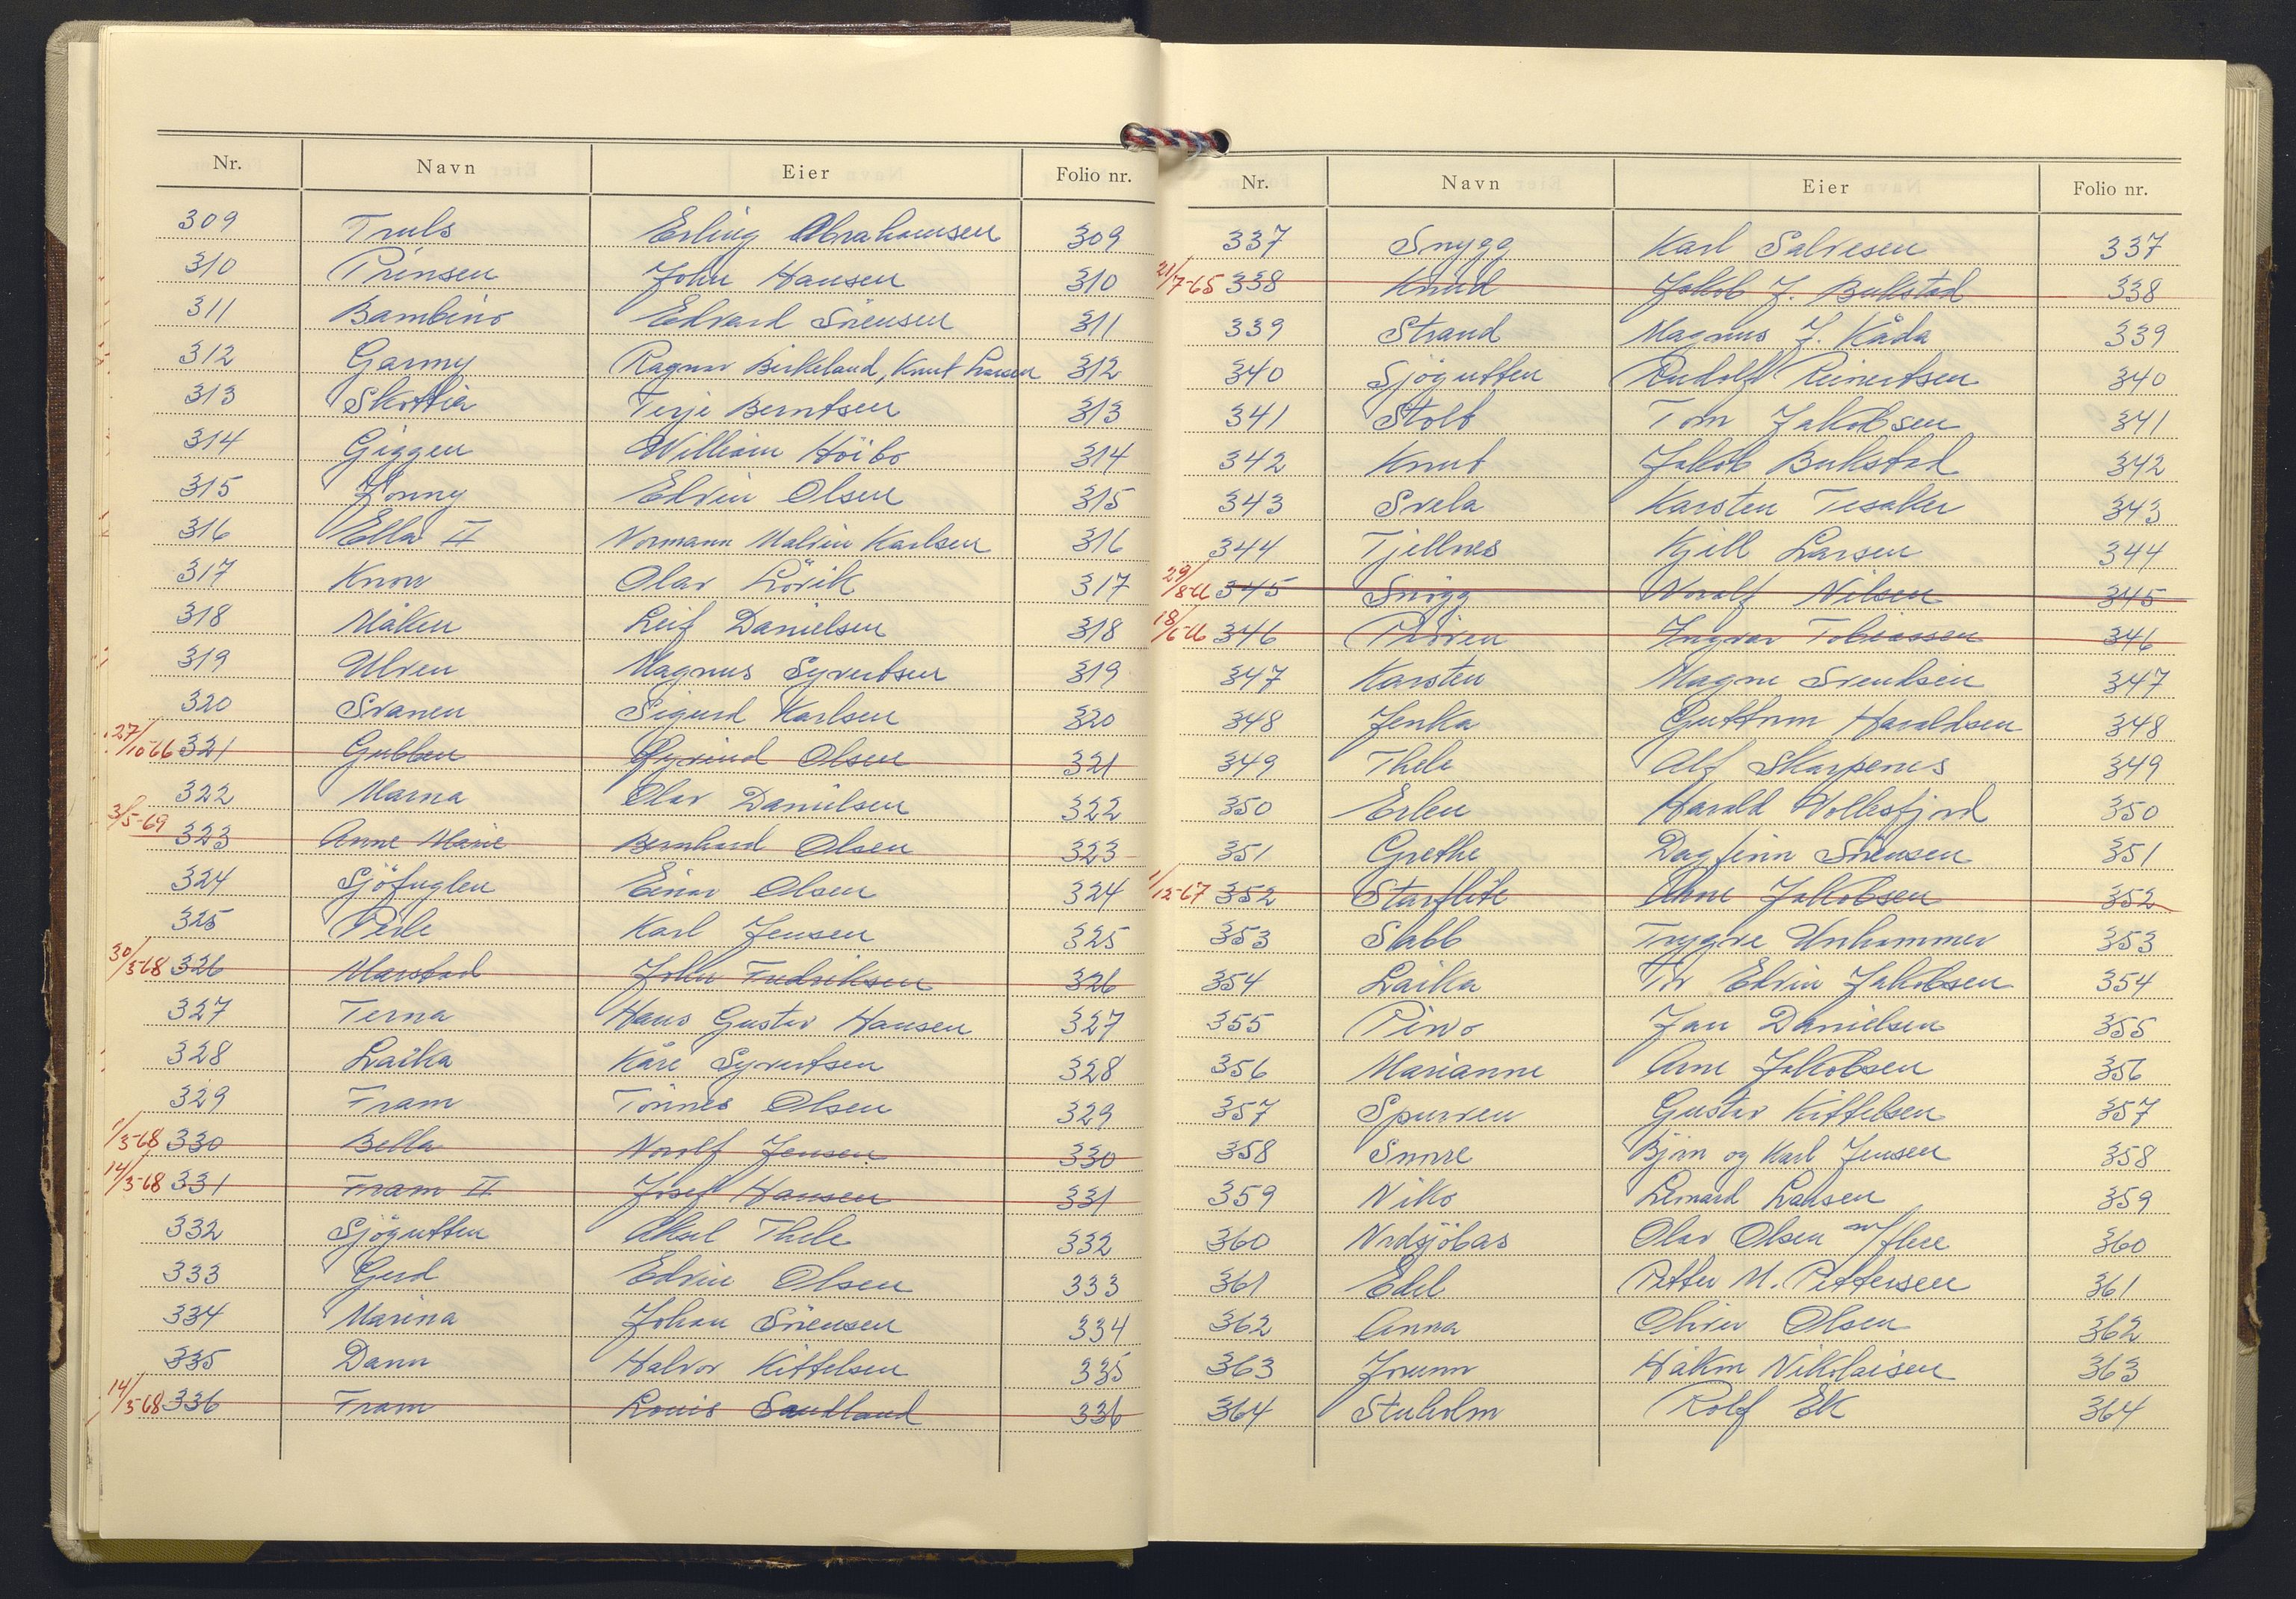 Nr. Navn Eier Folio nr.
309 Truls Erling Abrahamsen 309
310 Prinsen John Hansen 310
311 Bambino Edvard Sörensen 311
312 Garmy Ragnar Birkeland, Knut Larsen 312
313 Skottia Terje Berntsen 313
314 Giggen William Höibo 314
315 Jonny Edvin Olsen 315
316 Ella II Normann Malvin Karlsen 316
317 Knorr Olav Lövik 317
318 Måken Leif Danielsen 318
319 Ulven Magnus Syvertsen 319
320 Svanen Sigurd Karlsen 320
27/10-66 321 Gubben Øyvind Olsen 321
322 Marna Olav Danielsen 322
3/5-69 323 Anne Marie Bernhard Olsen 323
324 Sjöfuglen Einar Olsen 324
325 Perle Karl Jensen 325
30/3-68 326 Marstad John Fredriksen 326
327 Terna Hans Gustav Hansen 327
328 Laika Kåre Syvertsen 328
329 Fram Tönnes Olsen 329
1/3-68 330 Bella Norolf Jensen 330
14/3-68 331 Fram II Josef Hansen 331
332 Sjögutten Aksel Thele 332
333 Gerd Edvin Olsen 333
334 Marina Johan Sörensen 334
335 Dann Halvor Kittelsen 335
14/3-68 336 Fram Louis Sandland 336
Nr. Navn Eier Folio nr.
337 Snygg Karl Salvesen 337
21/7-65 338 Knud Jakob J. Bukstad 338
339 Strand Magnus J. Kåda 339
340 Sjögutten Rudolf Reinertsen 340
341 Stolt Tom Jakobsen 341
342 Knut Jakob Bukstad 342
343 Svela Karsten Tesaker 343
344 Tjellnes Kjell Larsen 344
29/8-66 345 Snögg Noralf Nilsen 345
18/6-66 346 Pröven Ingvar Tobiassen 346
347 Karsten Magne Svendsen 347
348 Jenka Guttorm Haraldsen 348
349 Thele Alf Skarpenes 349
350 Erlen Harald Vollesfjord 350
351 Grethe Dagfinn Sörensen 351
1/12-67 352 Starflite Arne Jakobsen 352
353 Stabb Trygve Unhammer 353
354 Laika Tor Edvin Jakobsen 354
355 Pirvo Jan Danielsen 355
356 Marianne Arne Jakobsen 356
357 Spurven Gustav Kittelsen 357
358 Snorre Björn og Karl Jensen 358
359 Niko Lenard Larsen 359
360 Nordsjöbas Olav Olsen m/flere 360
361 Edel Petter M. Pettersen 361
362 Anna Oliver Olsen 362
363 Jorunn Håkon Nikolaisen 363
364 Stuholm Rolf Ek 364